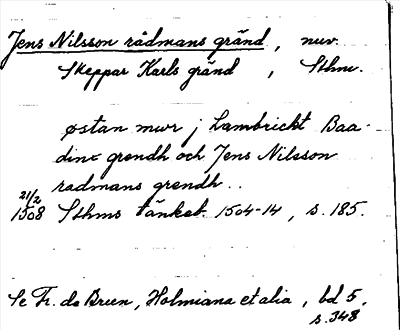 Jens Nilsson rådmans gränd, nuv.
Skeppar Karls gränd, Sthm.
østan mwr j Lambrickt Baa-
dins grendh och Jens Nilsson
radmans grendh..
21/2
1508 Sthms tänkeb. 1504-14, s. 185.
Se Fr. de Brun, Holmiana et alia, bd 5,
s. 348